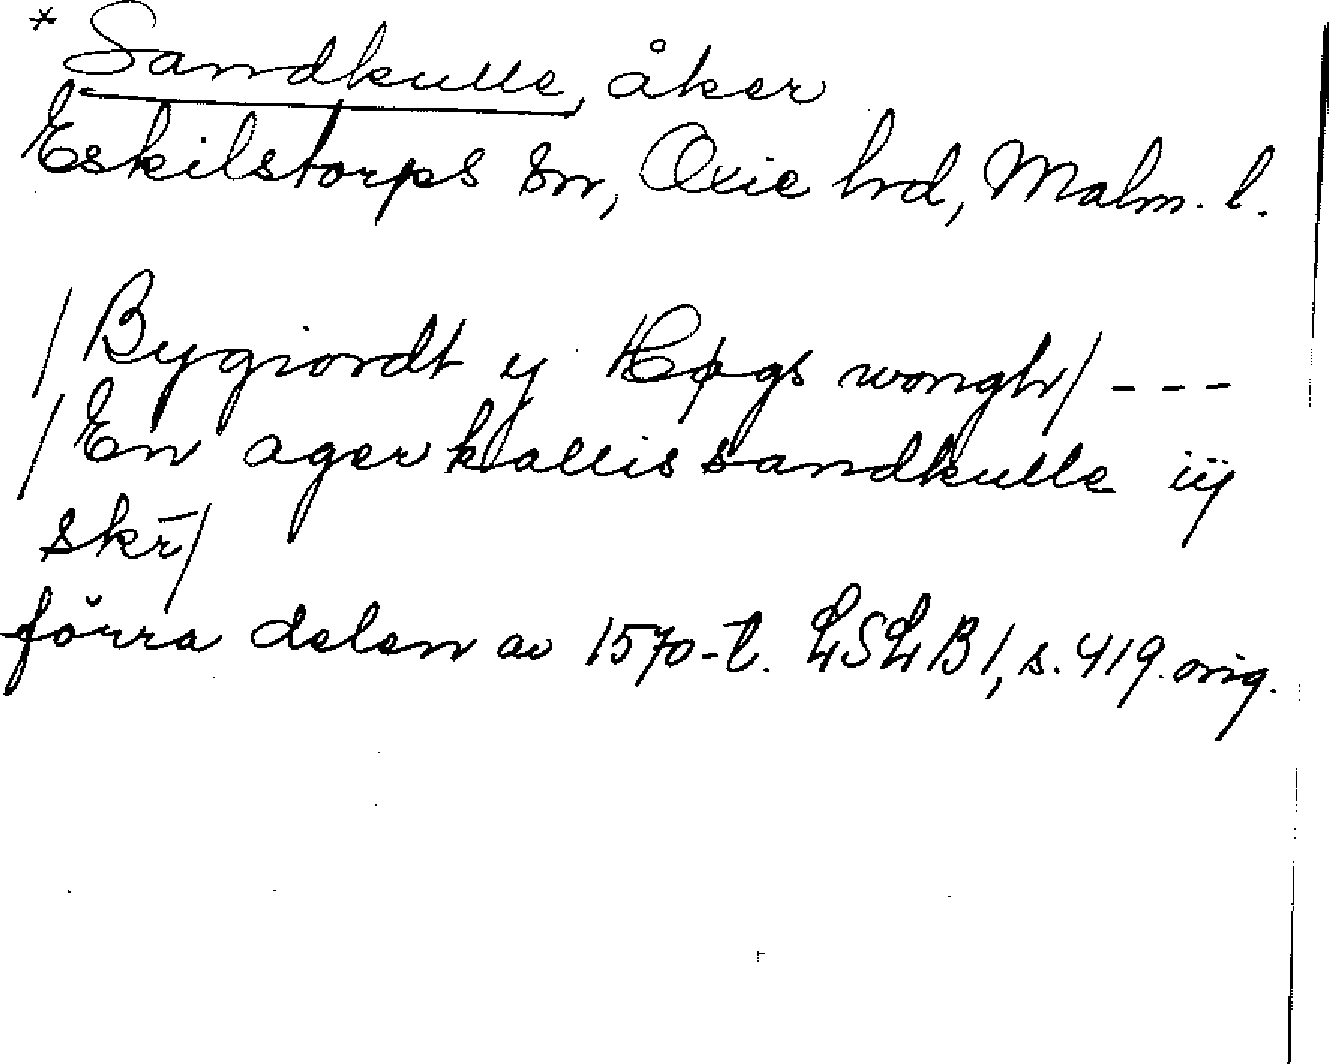 * Sandkulle, åker
Eskilstorps sn, Oxie hd, Malm. l.
/Bygiordt y Høgs wongh/ - - -
/En ager kallis sandkulle iij
skr̄/
förra delen av 1570-t. LSLB 1, s. 419. orig.